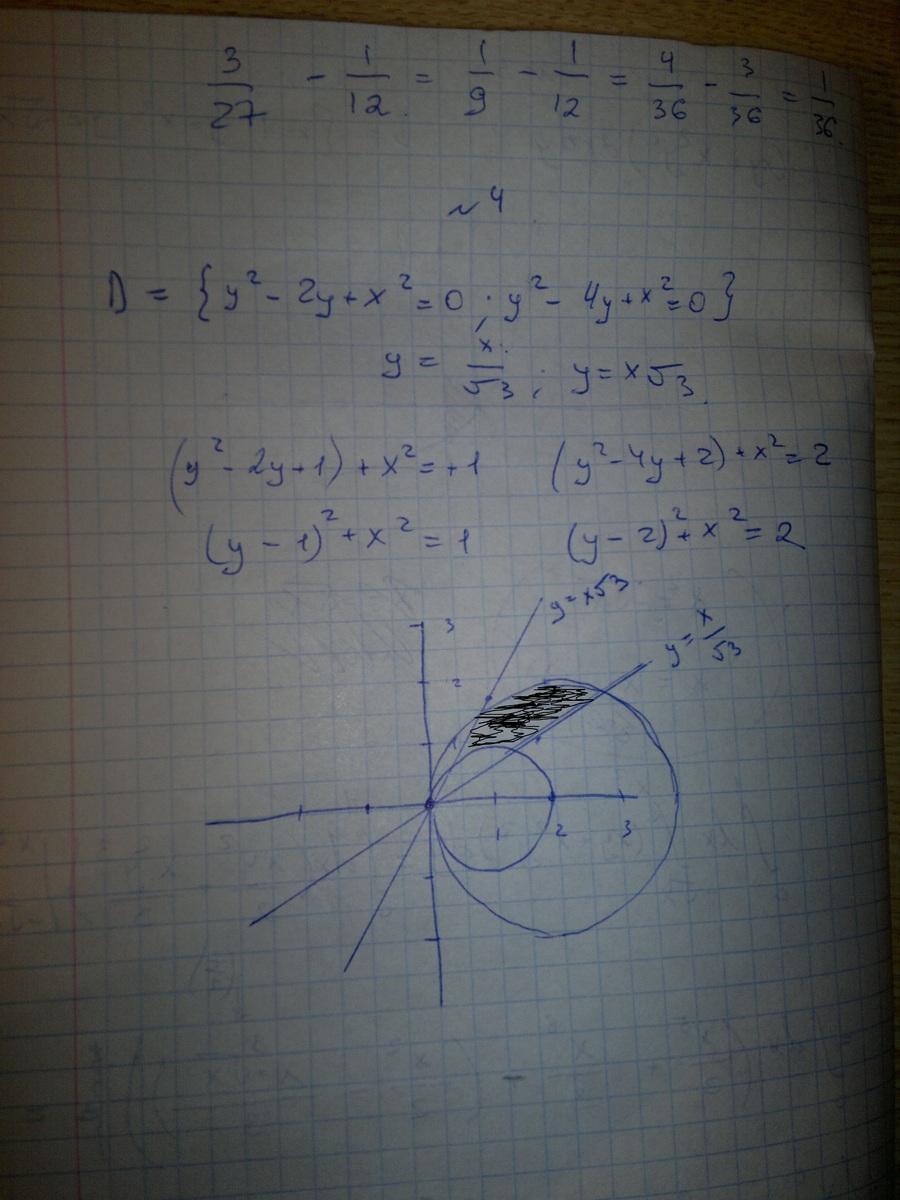 3/27 - 1/12 = 1/9 - 1/12 = 4/36 - 3/36 = 1/36
~ 4
D = {y² - 2y + x² = 0 ; y² - 4y + x² = 0}
y = x/√3 ; y = x√3
(y² - 2y + 1) + x² = +1 (y² - 4y + 2) + x² = 2
(y - 1)² + x² = 1 (y - 2)² + x² = 2
y = x√3
3
y = x/√3
2
1
1 2 3